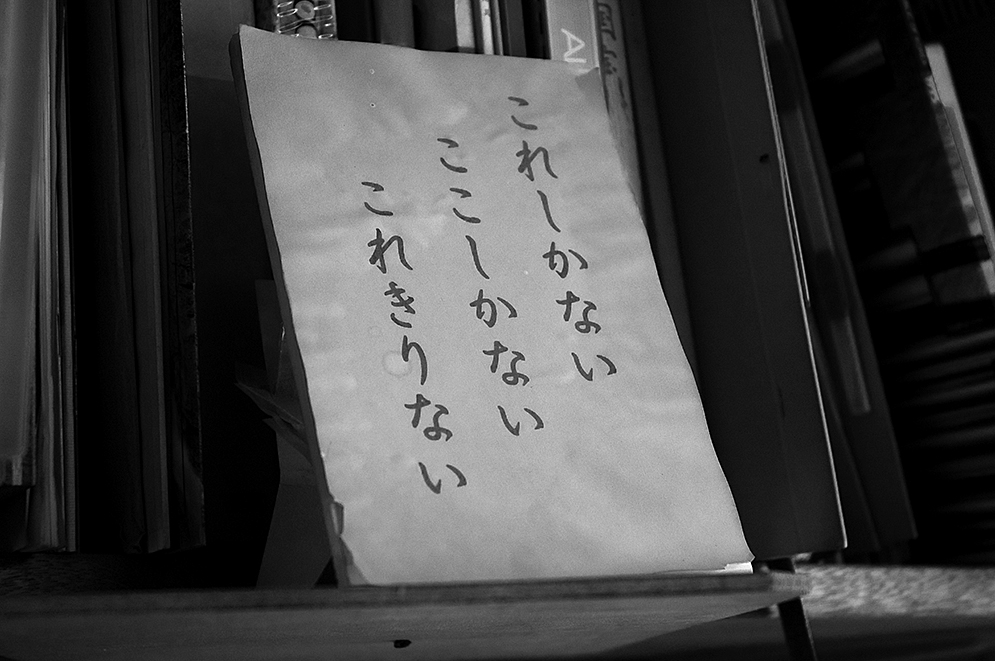 これしかない
ここしかない
これきりない
AL